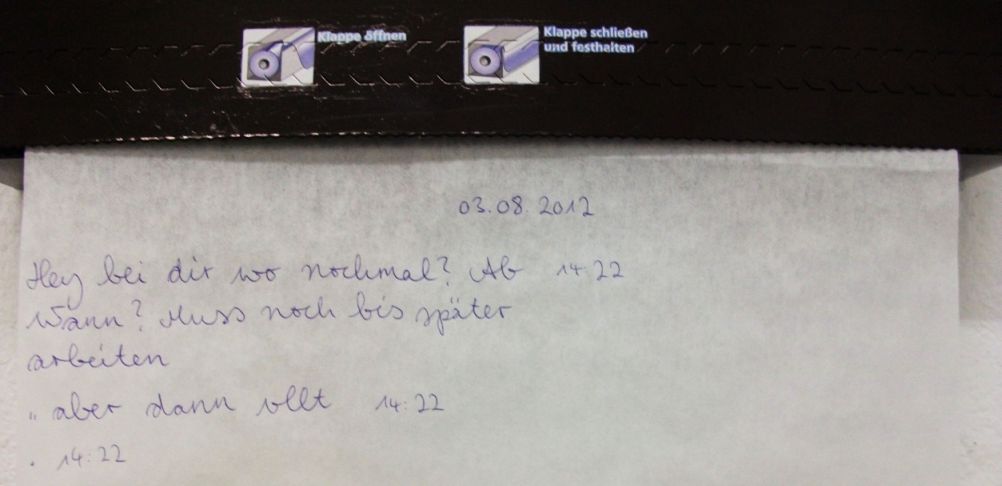 Klappe öffnen
Klappe schließen
und festhalten
03.08.2012
Hey bei dir wo nochmal? Ab 14:22
Wann? Muss noch bis später
arbeiten
.. aber dann vllt 14:22
. 14:22